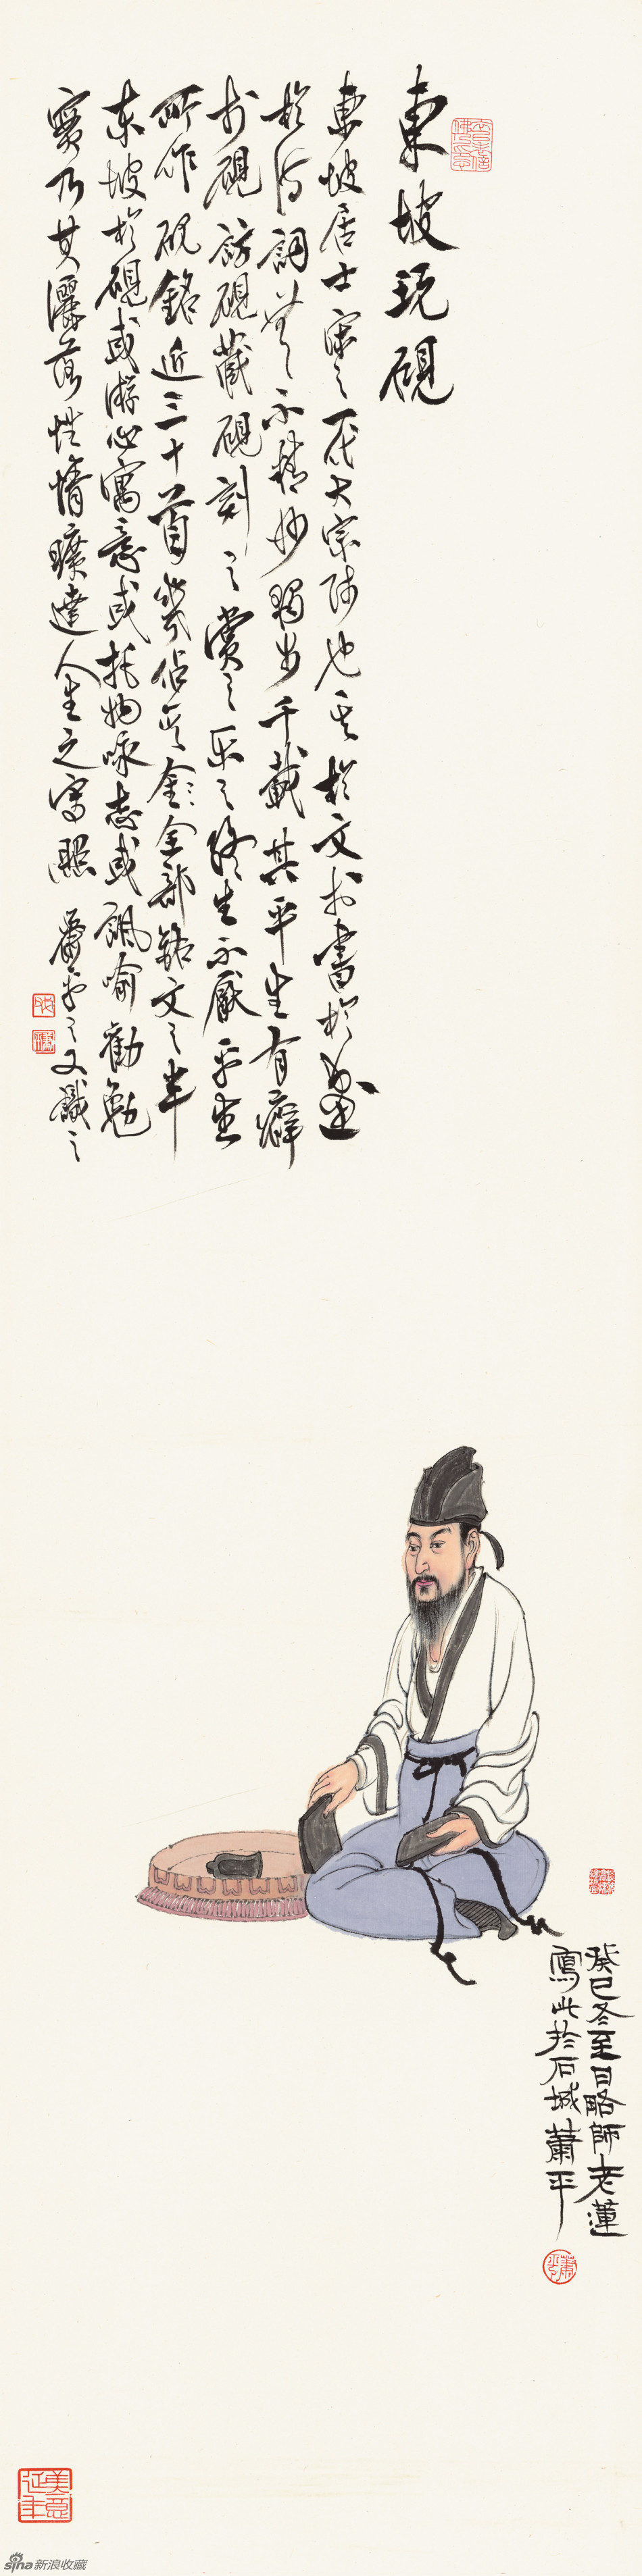 東坡玩硯
東坡居士宋之一代大宗師也其於文於書於畫
於詩詞無不精妙獨步千載其平生有癖
於硯訪硯藏硯刻之賞之樂之終生不厭平生
所作硯銘近三十首幾佔其全部銘文之半
東坡於硯或游心寓意或托物咏志或諷喻勸勉
實乃其灑落性情曠達人生之寫照 蕭平之又識之
癸巳冬至日略師老蓮
寫此於石城蕭平
蕭平
美意延年
sina新浪收藏